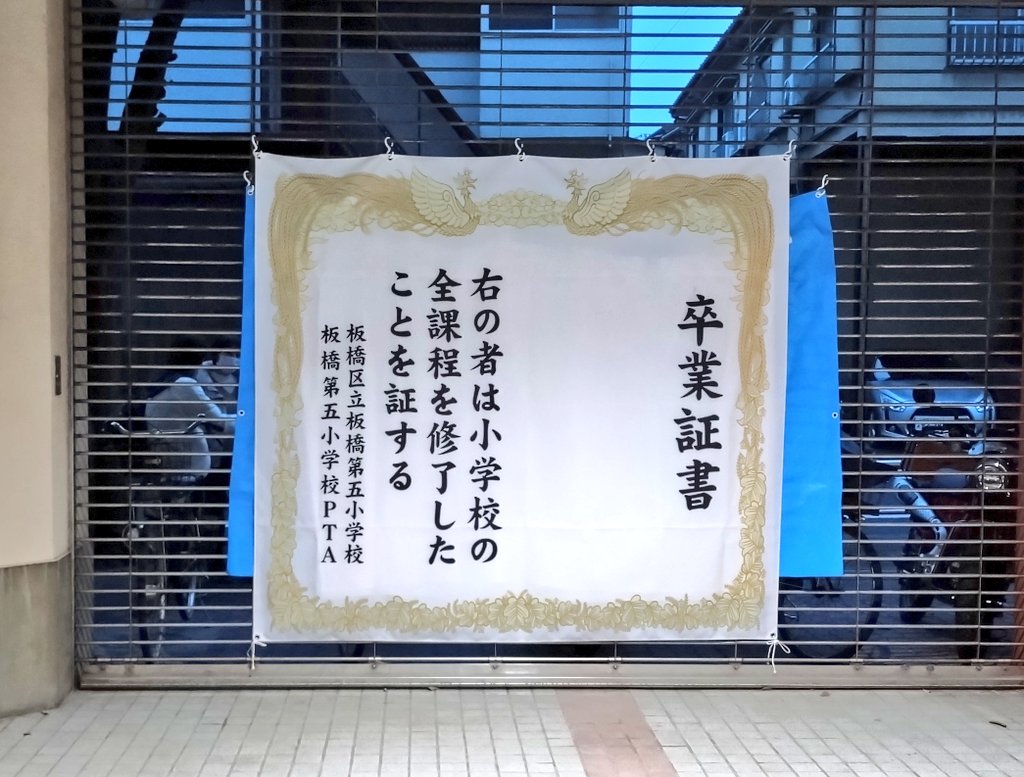 卒業証書
右の者は小学校の
全課程を修了した
ことを証する
板橋区立板橋第五小学校
板橋第五小学校PTA